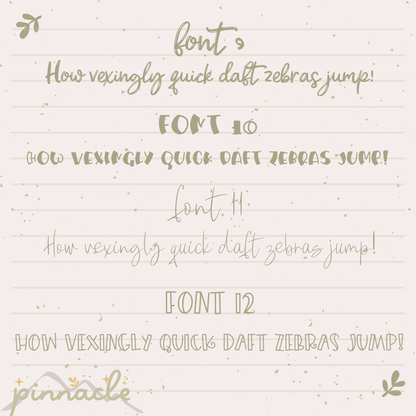 font 9
How vexingly quick daft zebras jump!
FONT 10
HOW VEXINGLY QUICK DAFT ZEBRAS JUMP!
font 11
How vexingly quick daft zebras jump!
FONT 12
HOW VEXINGLY QUICK DAFT ZEBRAS JUMP!
pinnacle